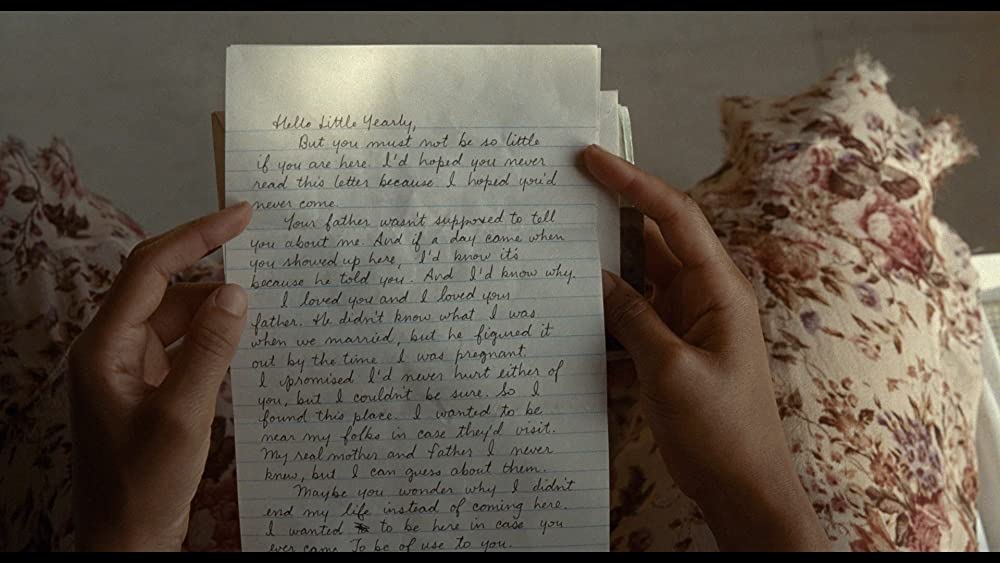 Hello Little Yearly,
But you must not be so little
if you are here. I'd hoped you never
read this letter because I hoped you'd
never come.
Your father wasn't supposed to tell
you about me. And if a day came when
you showed up here, I'd know it's
because he told you. And I'd know why.
I loved you and I loved your
father. He didn't know what I was
when we married, but he figured it
out by the time I was pregnant.
I promised I'd never hurt either of
you, but I couldn't be sure. So I
found this place. I wanted to be
near my folks in case they'd visit.
My real mother and father I never
knew, but I can guess about them.
Maybe you wonder why I didn't
end my life instead of coming here.
I wanted to be here in case you
ever came. To be of use to you.